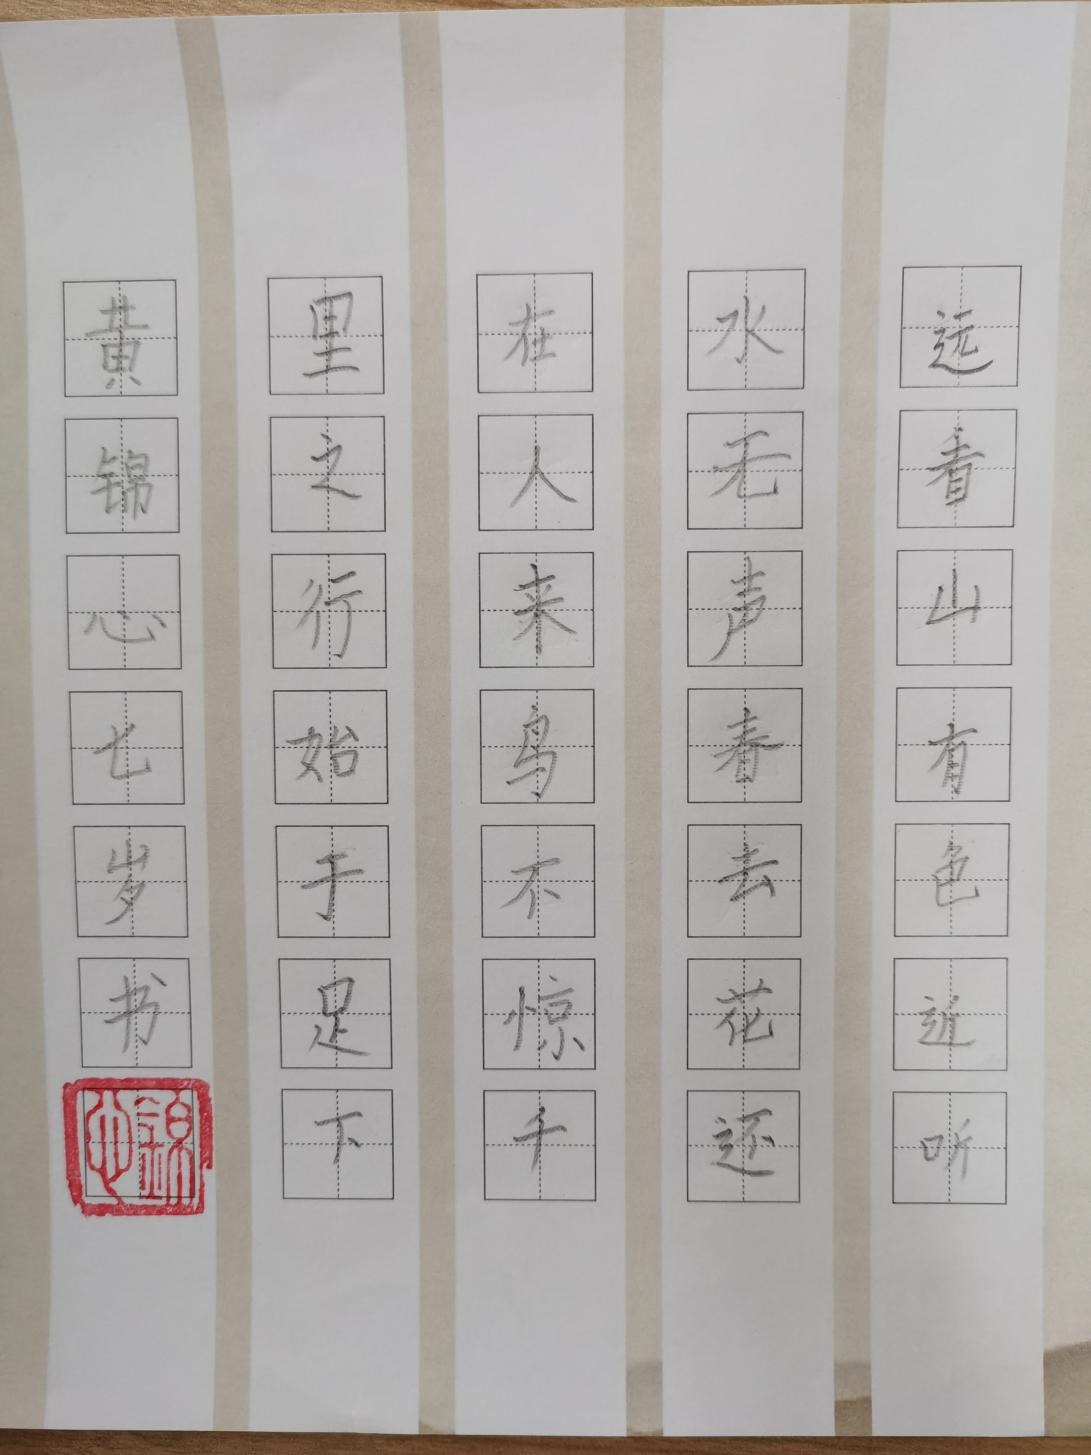 远看山有色近听
水无声春去花还
在人来鸟不惊千
里之行始于足下
黄锦心七岁书
锦心